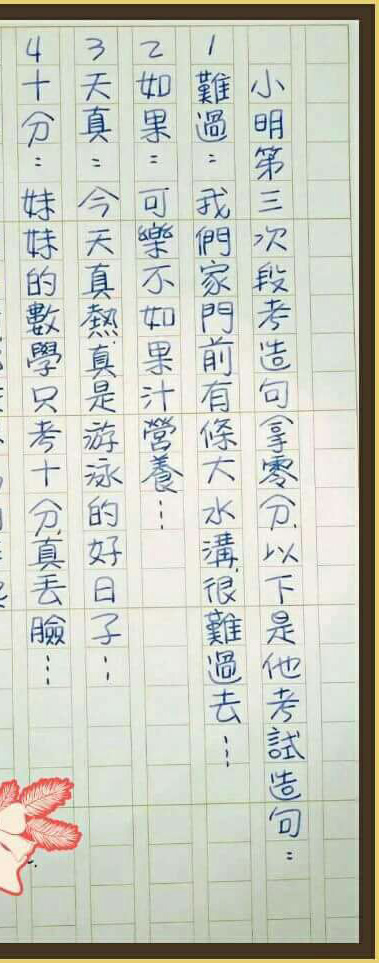 小明第三次段考造句拿零分,以下是他考試造句:
1難過:我們家門前有條大水溝,很難過去…
2如果:可樂不如果汁營養…
3天真:今天真熱,真是游泳的好日子…
4十分:妹妹的數學只考十分,真丟臉…